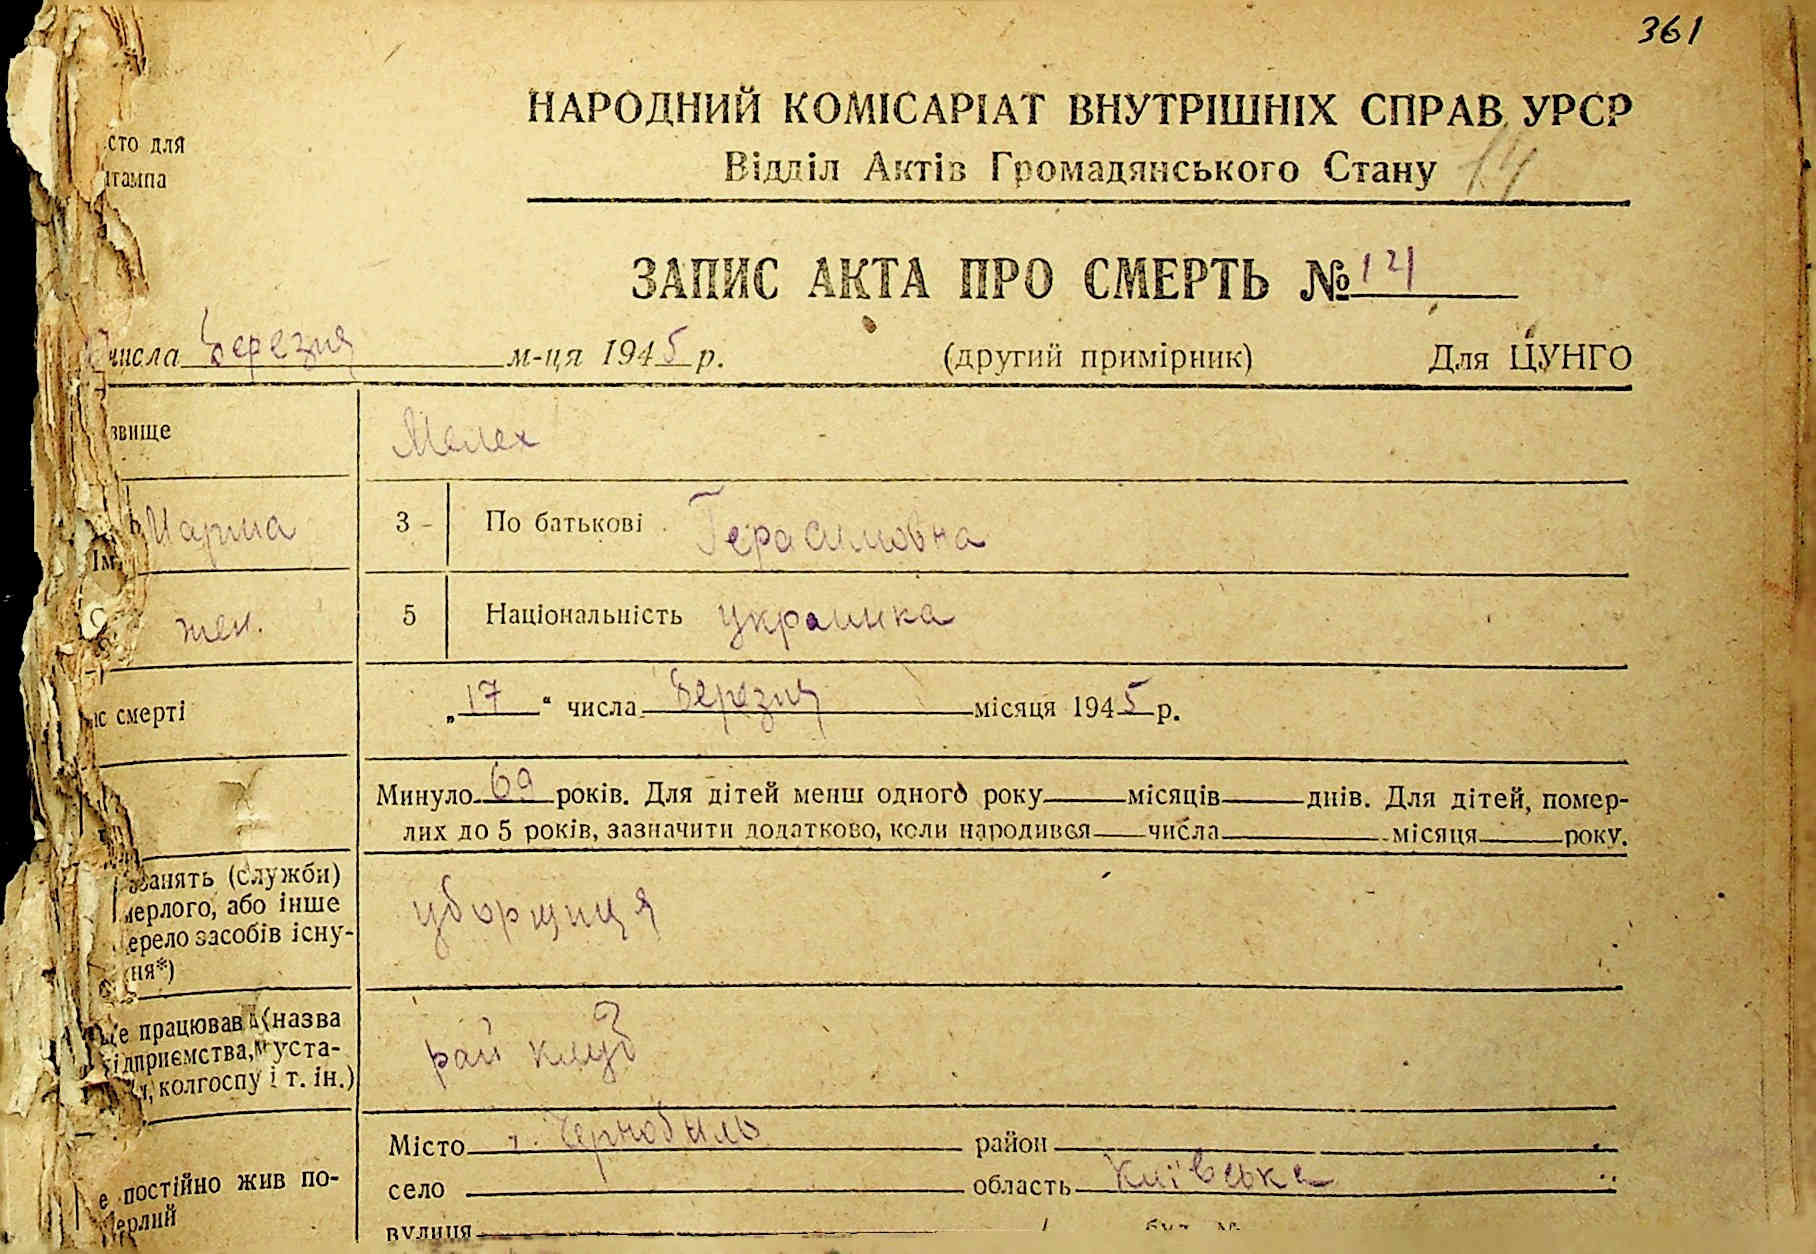 361
НАРОДНИЙ КОМІСАРІАТ ВНУТРІШНІХ СПРАВ УРСР
сто для
Відділ Актів Громадянського Стану 14
тампа
ЗАПИС АКТА ПРО СМЕРТЬ № 121
числа березня м-ця 1945 р. (другий примірник) Для ЦУНГО
звище Мелех
Ім Марина 3 - По батькові Герасимовна
С жен. 5 Національність украинка
ас смерті „17“ числа березня місяця 1945 р.
Минуло 69 років. Для дітей менш одного року місяців днів. Для дітей, помер-
лих до 5 років, зазначити додатково, коли народився числа місяця року.
занять (служби)
мерлого, або інше
ерело засобів існу-
ня*)
уборщиця
е працював (назва
ідприємства, уста-
и, колгоспу і т. ін.)
рай клуб
Місто г. Чернобиль район
е постійно жив по-
мерлий
село область Київська
вулиця буд. №